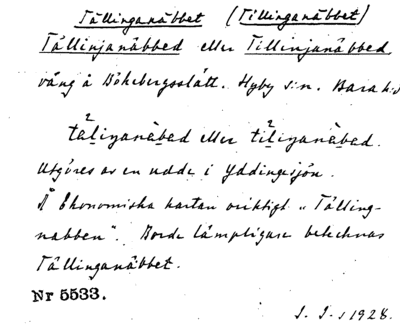 Tållinganäbbet (Tillinganäbbet)
Tållinjanäbbed eller Tillinjanäbbed,
vång å Bökebergsslätt. Hyby s:n. Bara h:d
tå²liŋanäbad eller ti²liŋanäbad.
Utgöres av en udde i Yddingesjön.
Å Ekonomiska kartan oriktigt "Tålling-
nabben". Borde lämpligare betecknas
Tållinganäbbet.
Nr 5533.
1928.